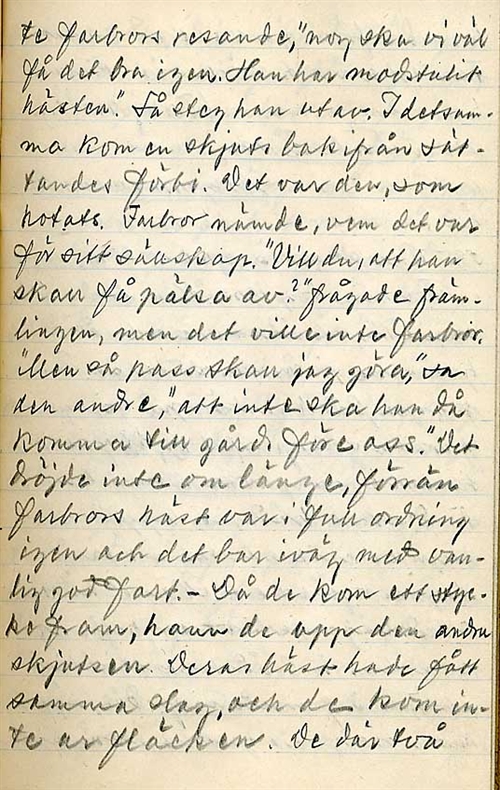 te farbrors resande, "nog ska vi väl
få det bra igen. Han har modstulit
hästen." Så steg han ut av. I detsam-
ma kom en skjuts bakifrån sät-
tandes förbi. Det var den, som
hotats. Farbror nämde, vem det var
för sitt sällskap. "Vill du, att han
skall få pälsa av?" frågade främ-
lingen, men det ville inte farbror.
"Men så pass skall jag göra," sa
den andre, "att inte ska han då
komma till gårds före oss." Det
dröjde inte om länge, förrän
farbrors häst var i full ordning
igen och det bar iväg med van-
lig god fart. - Då de kom ett styc-
ke fram, hann de upp den andra
skjutsen. Deras häst hade fått
samma slag, och de kom in-
te ur fläcken. De där två